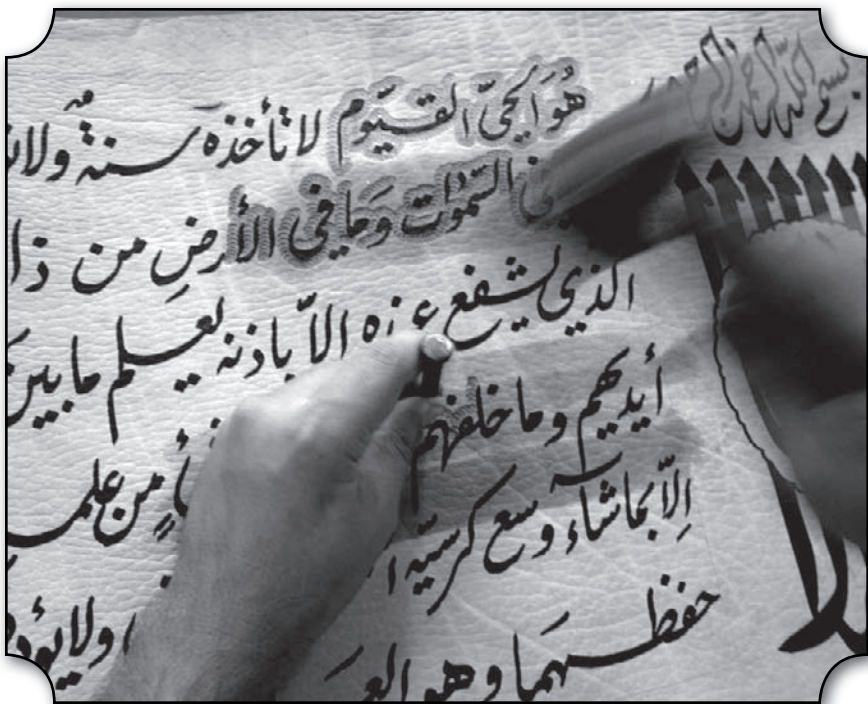 بسم الله الرحمن الرحيم
هُوَ الحيّ القيّوم لا تأخذه سنةٌ ولا
السّمٰوات وَما في الأرضِ من ذا
الذي يشفع ع ‍ده الاّ باذنه يعلم ما بين
أيديهم وما خلفهم من علمـ
اِلاّ بما شاء وسع كرسيّه ا
ولا يؤد
حفظـهما وهو العـ